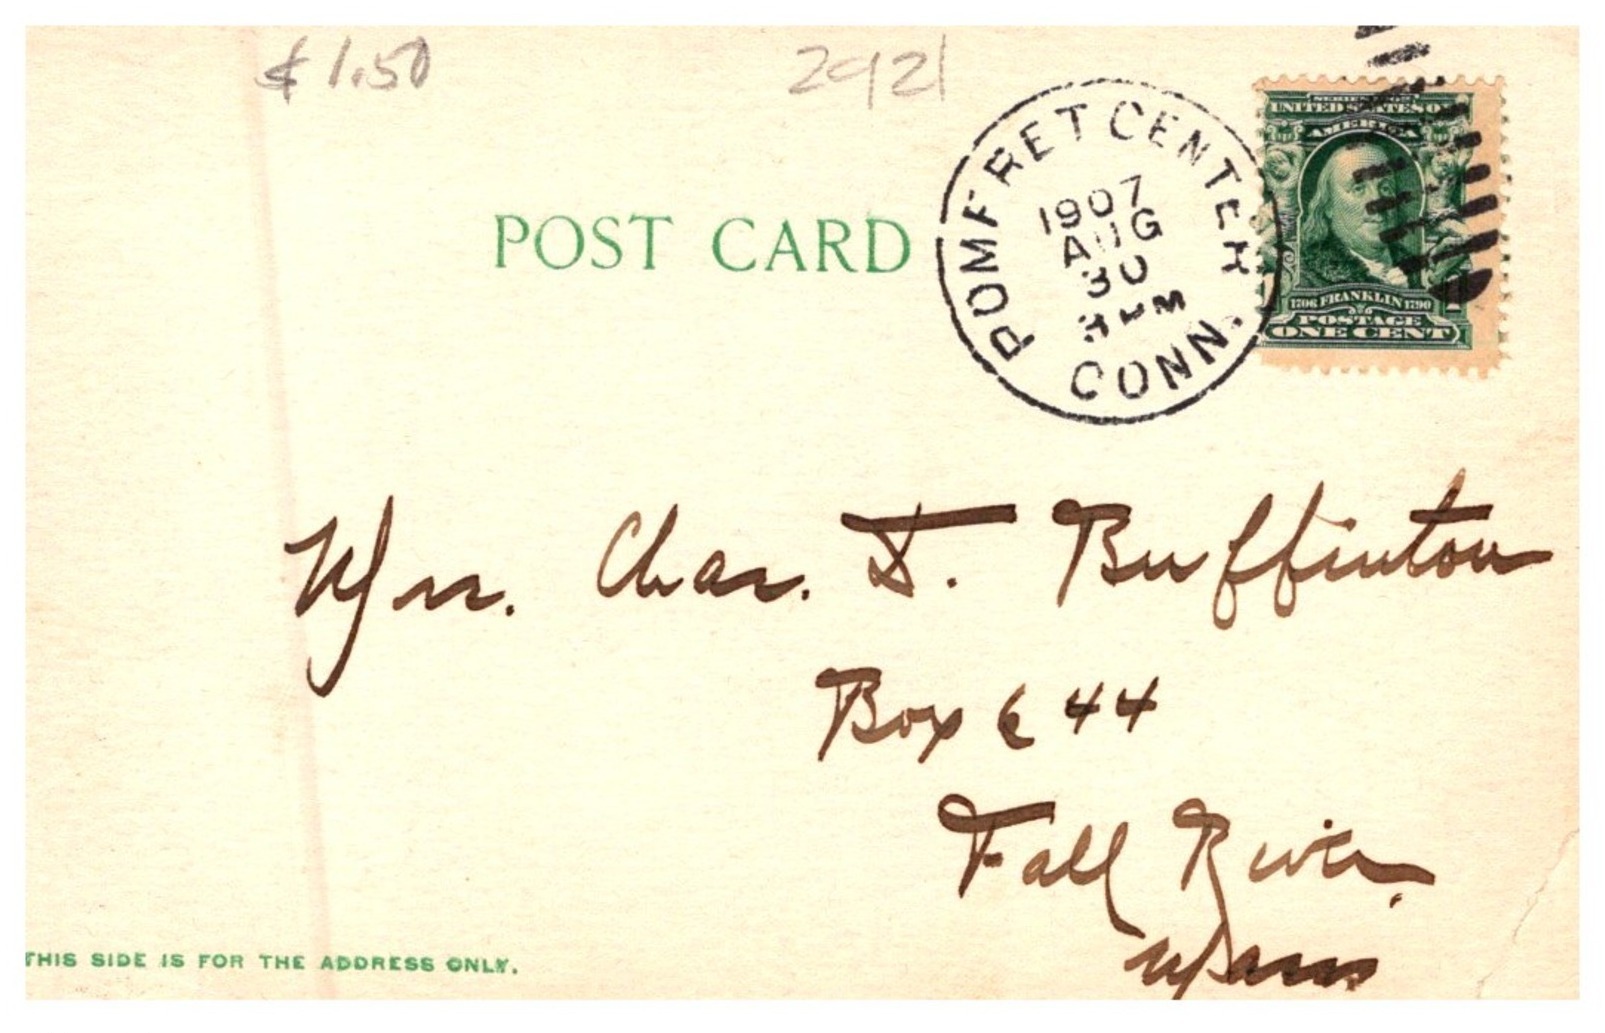 $1.50 2921
SERIES 1902
UNITED STATES OF
AMERICA
1706 FRANKLIN 1790
POSTAGE
ONE CENT
POMFRET CENTER
1907
AUG
30
PM
CONN.
POST CARD
Mrs. Chas. D. Buffinton
Box 644
Fall River,
Mass
THIS SIDE IS FOR THE ADDRESS ONLY.